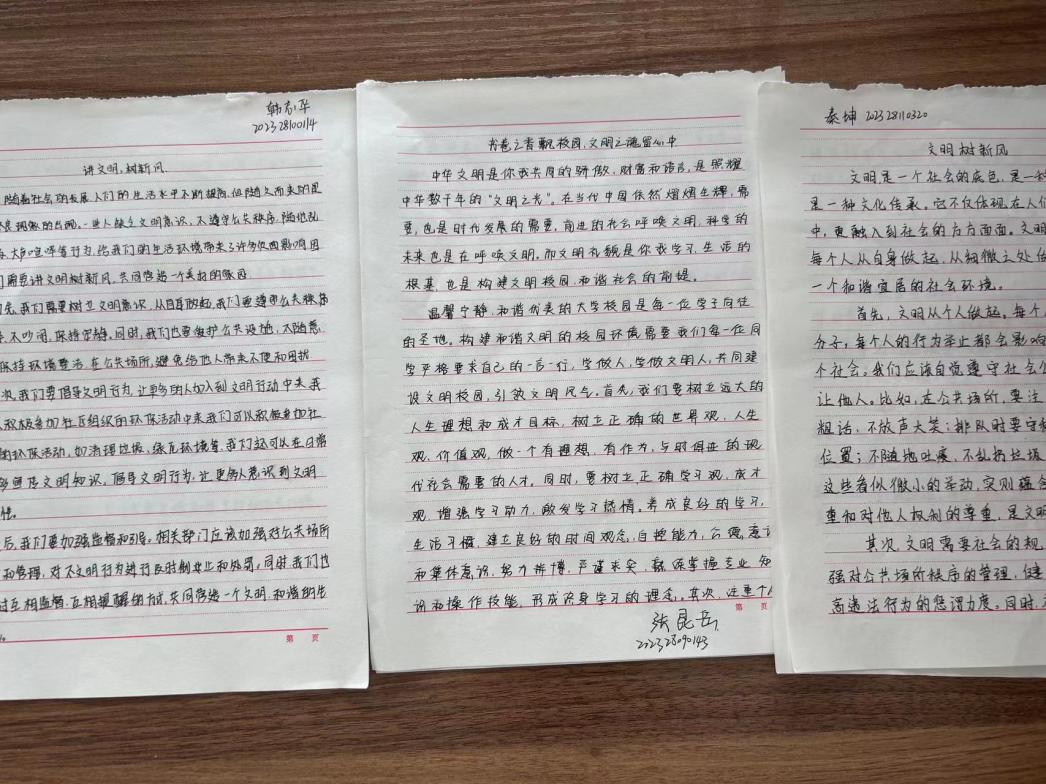 韩志华
202328100114
讲文明，树新风
随着社会的发展人们的生活水平不断提高，但随之而来的是
现象的出现。一些人缺乏文明意识，不遵守公共秩序，随地乱
大声喧哗等行为，给我们的生活环境带来了许多负面影响因
们需要讲文明树新风，共同营造一个美好的家园
先，我们需要树立文明意识，从自身做起，我们要遵守公共秩序
不吵闹，保持安静。同时，我们也要爱护公共设施，不随意
保持环境整洁，在公共场所，避免给他人带来不便和困扰
次，我们要倡导文明行为，让更多的人加入到文明行动中来我
积极参加社区组织的环保活动中来我们可以积极参加社
的环保活动，如清理垃圾，绿化环境等，我们还可以在日常
多普及文明知识，倡导文明行为，让更多人意识到文明
性。
后，我们要加强监督和引导，相关部门应该加强对公共场所
和管理，对不文明行为进行及时制止和处罚，同时，我们也
过互相监督，互相提醒的方式，共同营造一个文明、和谐的生
第 页
书卷之香飘校园，文明之魂留心中
中华文明是你我共同的骄傲，财富和语言，是照耀
中华数千年的“文明之光”。在当代中国依然熠熠生辉，需
要，也是时代发展的需要，前进的社会呼唤文明，科学的
未来也是在呼唤文明。而文明礼貌是你我学习、生活的
根基，也是构建文明校园，和谐社会的前提。
温馨宁静，和谐优美的大学校园是每一位学子向往
的圣地。构建和谐文明的校园环境需要我们每一位同
学严格要求自己的一言一行，学做人，学做文明人，共同建
设文明校园，引领文明风气。首先，我们要树立远大的
人生理想和成才目标，树立正确的世界观，人生
观，价值观，做一个有理想，有作为，与时俱进的现
代社会需要的人才。同时，要树立正确学习观，成才
观，增强学习动力，激发学习热情。养成良好的学习，
生活习惯，建立良好的时间观念，自控能力，公德意识
和集体意识，努力拼搏，严谨求实，熟练掌握专业知
识和操作技能，形成终身学习的理念。其次，注重个人
第 页
张昆岳
202328090143
秦坤 202328110320
文明树新风
文明，是一个社会的底色，是一种
是一种文化传承。它不仅体现在人们
中，更融入到社会的方方面面。文明
每个人从自身做起，从细微之处做
一个和谐宜居的社会环境。
首先，文明从个人做起。每个人
分子，每个人的行为举止都会影响
个社会。我们应该自觉遵守社会公
让他人。比如，在公共场所，要注
粗话，不放声大笑；排队时要守秩
位置；不随地吐痰，不乱扔垃圾
这些看似微小的举动，实则蕴含
重和对他人权利的尊重，是文明
其次，文明需要社会的规
强对公共场所秩序的管理，健
高违法行为的惩罚力度。同时，